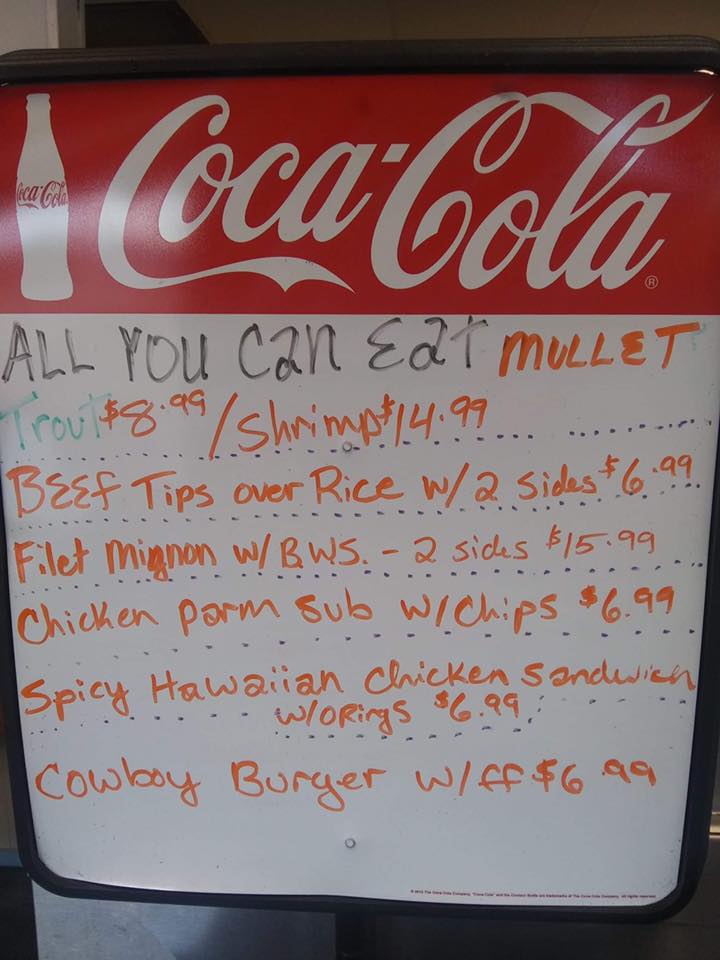 Coca-Cola
Coca-Cola®
ALL YOU CAN EAT MULLET
Trout $8.99 / Shrimp $14.99
BEEF Tips over Rice w/ 2 Sides $6.99
Filet Mignon w/ B.W.S. - 2 sides $15.99
Chicken parm sub w/ Chips $6.99
Spicy Hawaiian Chicken Sandwich
w/ORings $6.99
Cowboy Burger w/ff $6.99